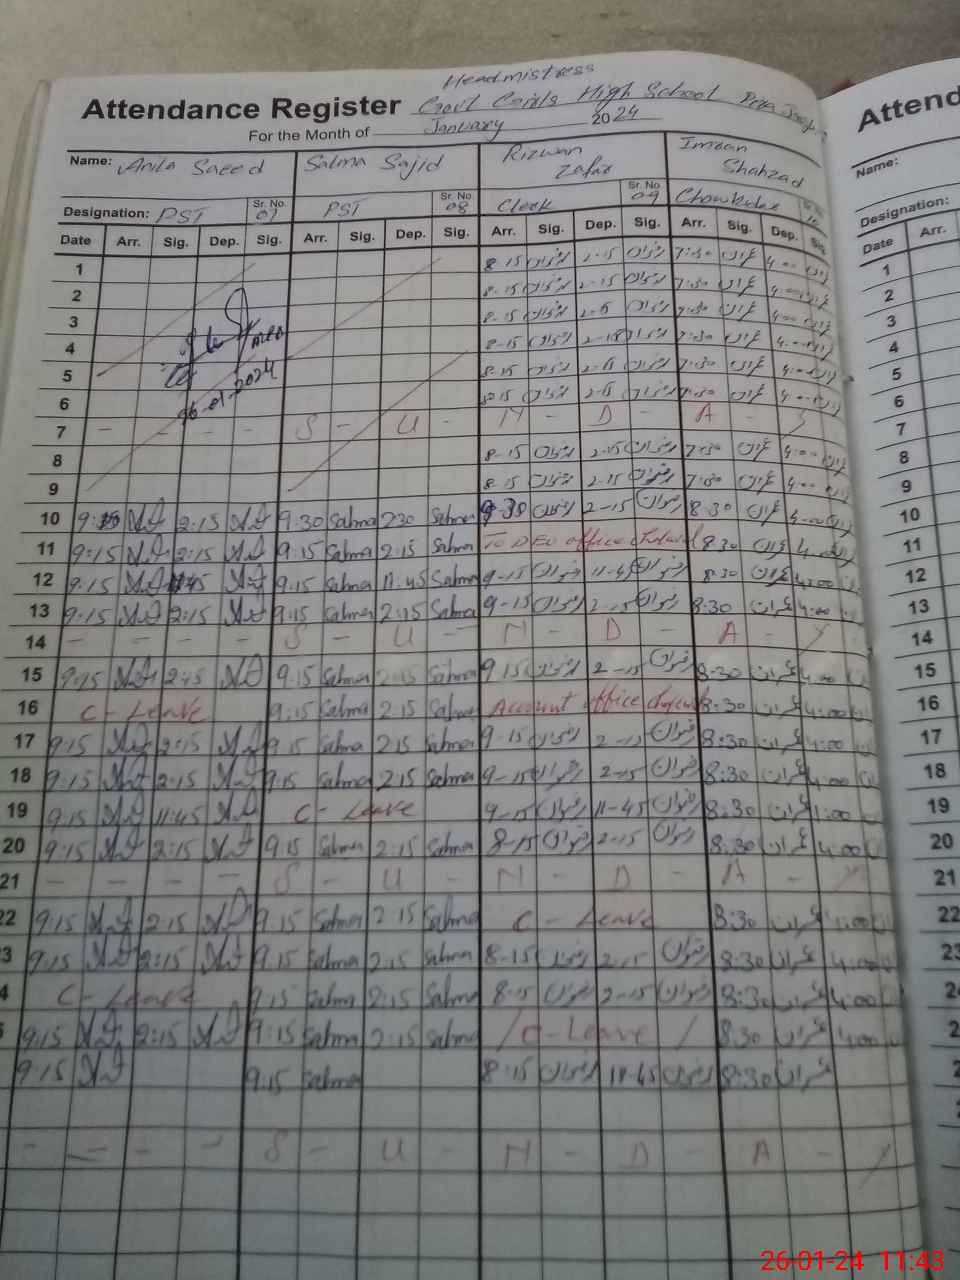 Headmistress
Attendance Register Govt Girls High School
For the Month of January 2024
Name: Anila Saeed Salma Sajid Rizwan Zafar Imran Shahzad
Designation: PST Sr. No. 07 PST Sr. No. 08 Clerk Sr. No. 09 Chowkidar
Date Arr. Sig. Dep. Sig. Arr. Sig. Dep. Sig. Arr. Sig. Dep. Sig. Arr. Sig. Dep. Sig.
1 8-15 رضوان 2-15 رضوان 7:30 عمران 4:00
2 8-15 رضوان 2-15 رضوان 7:30 عمران 4:00
3 8-15 رضوان 2-15 رضوان 7:30 عمران 4:00
4 8-15 رضوان 2-15 رضوان 7:30 عمران 4:00
5 8-15 رضوان 2-15 رضوان 7:30 عمران 4:00
6 8-15 رضوان 2-15 رضوان 7:30 عمران 4:00
06-01-2024
7 - - - - S - U - N - D - A - Y
8 8-15 رضوان 2-15 رضوان 7:30 عمران 4:00
9 8-15 رضوان 2-15 رضوان 7:30 عمران 4:00
10 9:15 2:15 9:30 Salma 230 Salma 9-30 رضوان 2-15 رضوان 8:30 عمران 4:00
11 9:15 2:15 9:15 Salma 2:15 Salma To DEO office 8:30 عمران 4:00
12 9:15 11:45 9:15 Salma 11:45 Salma 9-15 رضوان 11-45 رضوان 8:30 عمران 4:00
13 9:15 2:15 9:15 Salma 2:15 Salma 9-15 رضوان 2-15 رضوان 8:30 عمران 4:00
14 - - - - S - U - N - D - A - Y
15 9:15 2:45 9:15 Salma 2:15 Salma 9 15 رضوان 2-15 رضوان 8:30 عمران 4:00
16 C - Leave 9:15 Salma 2:15 Salma Account office 8:30 عمران 4:00
17 9:15 2:15 9:15 Salma 2:15 Salma 9-15 رضوان 2-15 رضوان 8:30 عمران 4:00
18 9:15 2:15 9:15 Salma 2:15 Salma 9-15 رضوان 2-15 رضوان 8:30 عمران 4:00
19 9:15 11:45 C - Leave 9-15 رضوان 11-45 رضوان 8:30 عمران 1:00
20 9:15 2:15 9:15 Salma 2:15 Salma 8-15 رضوان 2-15 رضوان 8:30 عمران 4:00
21 - - - - S - U - N - D - A - Y
22 9:15 2:15 9:15 Salma 2:15 Salma C - Leave 8:30 عمران 4:00
3 9:15 2:15 9:15 Salma 2:15 Salma 8-15 رضوان 2-15 رضوان 8:30 عمران 4:00
4 C - Leave 9:15 Salma 2:15 Salma 8-15 رضوان 2-15 رضوان 8:30 عمران 4:00
9:15 2:15 9:15 Salma 2:15 Salma / C - Leave / 8:30 عمران 4:00
9:15 9:15 Salma 8-15 رضوان 11-45 رضوان 8:30 عمران
- - - - S - U - N - D - A - Y
Attend
Name:
Designation:
Date Arr.
1
2
3
4
5
6
7
8
9
10
11
12
13
14
15
16
17
18
19
20
21
22
23
26-01-24 11:43